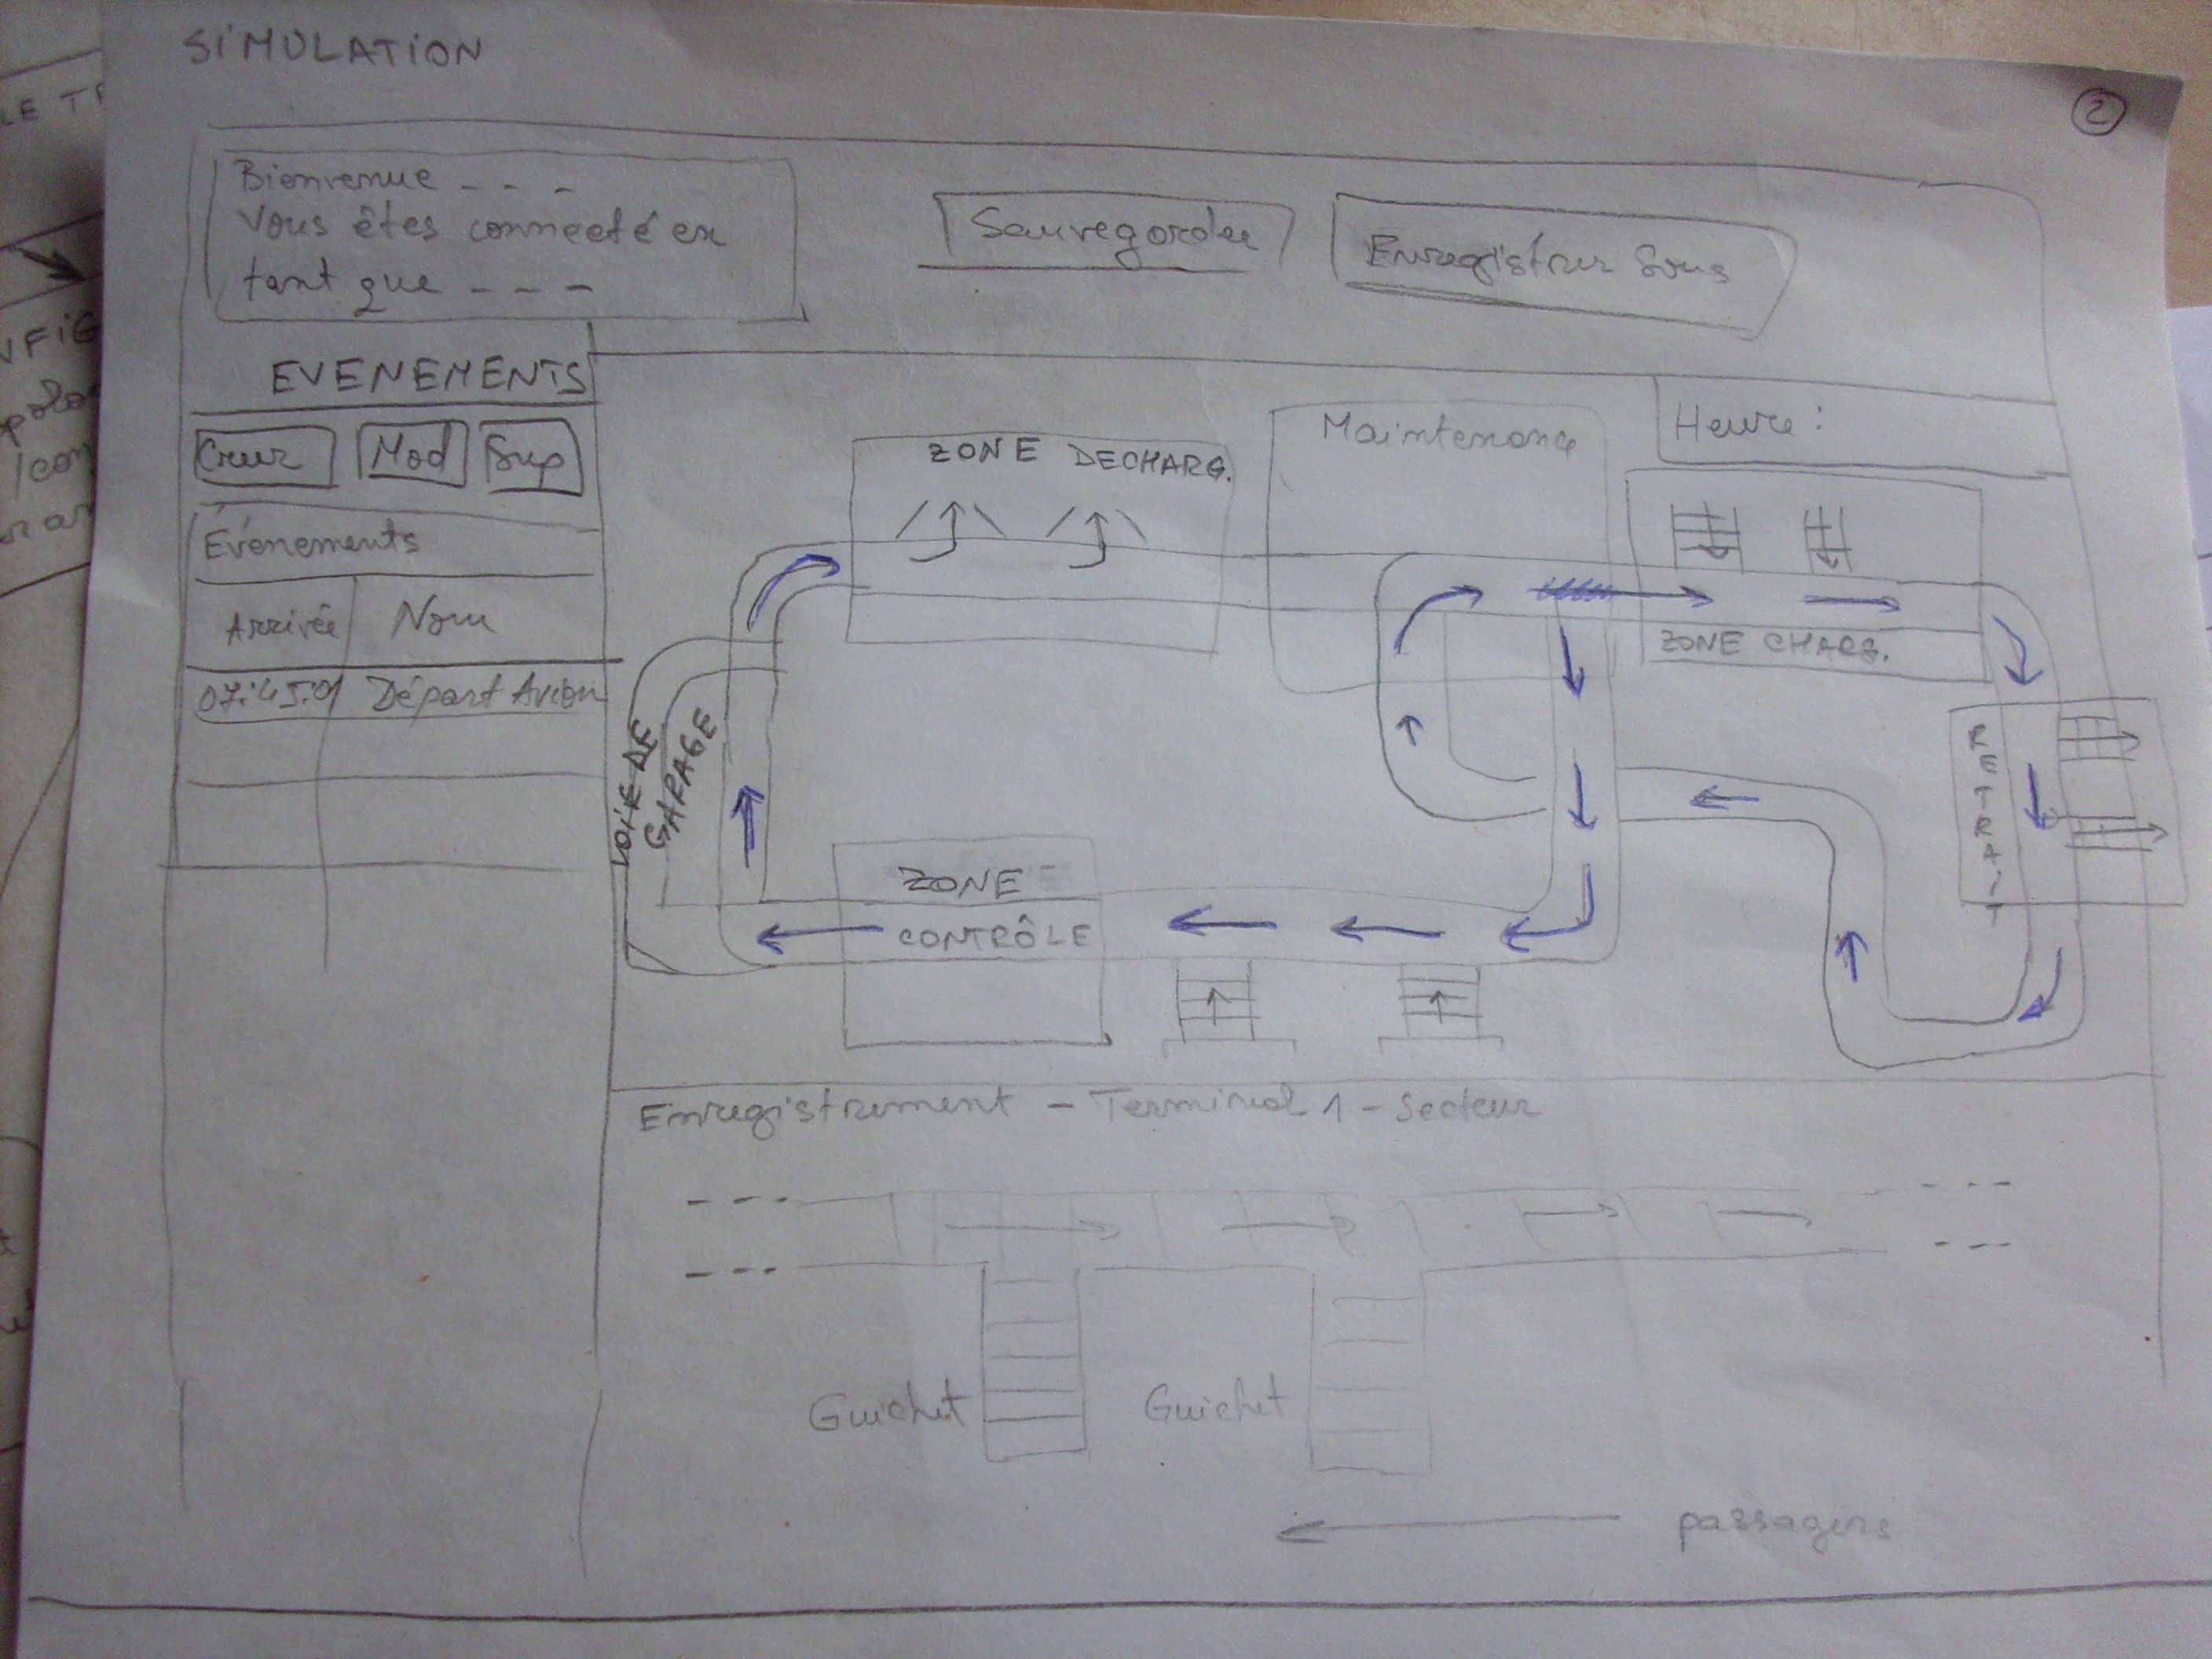 SIMULATION
2
Bienvenue - - -
Vous êtes connecté en
tant que - - -
Sauvegarder
Enregistrer Sous
EVENEMENTS
Creer
Mod
Sup
Evénements
Arrivée
Nom
07:45:01
Départ Avion
ZONE DECHARG.
Maintenance
Heure :
ZONE CHARG.
RETRAIT
VOIE DE
GARAGE
ZONE
CONTRÔLE
Enregistrement - Terminal 1 - Secteur
Guichet
Guichet
passagers
LE TR